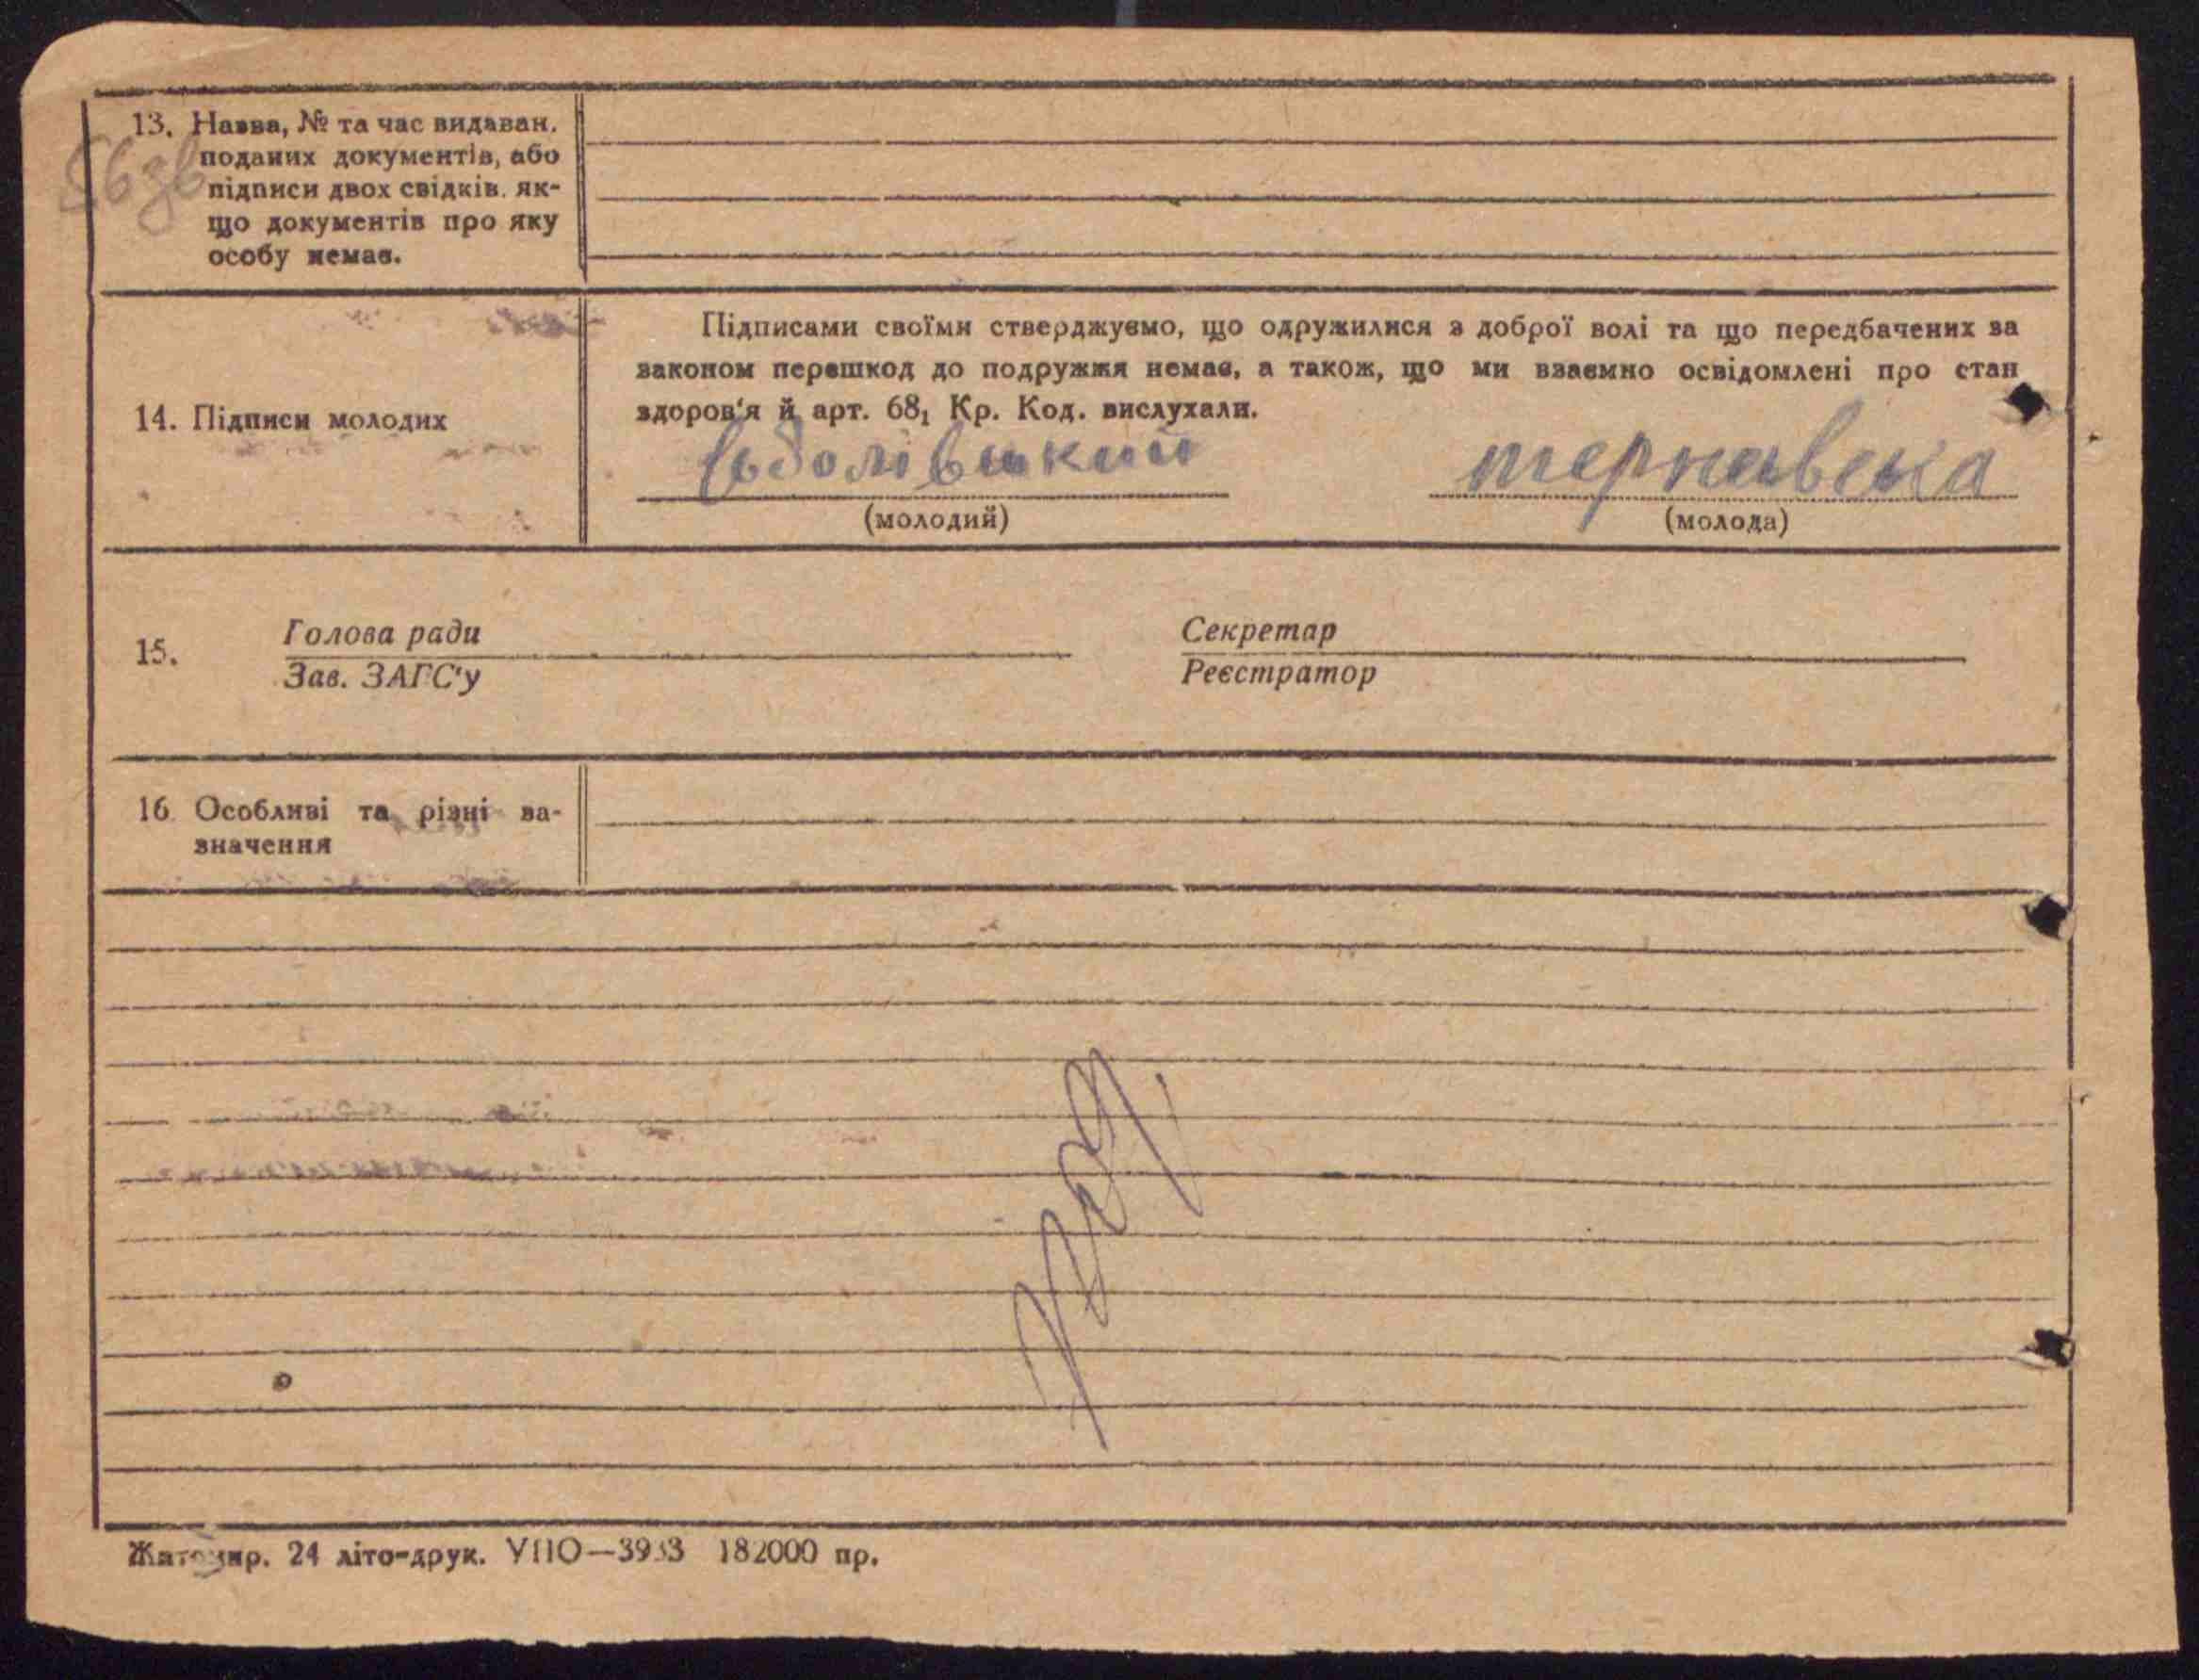 13. Назва, № та час видаван.
поданих документів, або
підписи двох свідків. як-
що документів про яку
особу немає.
Підписами своїми стверджуємо, що одружилися з доброї волі та що передбачених за
законом перешкод до подружжя немає, а також, що ми взаємно освідомлені про стан
здоров'я й арт. 68₁ Кр. Код. вислухали.
14. Підписи молодих
тернавска
(молодий) (молода)
15. Голова ради Секретар
Зав. ЗАГС'у Реєстратор
16 Особливі та різні за-
значення
Житомир. 24 літо-друк. УПО—3933 182000 пр.